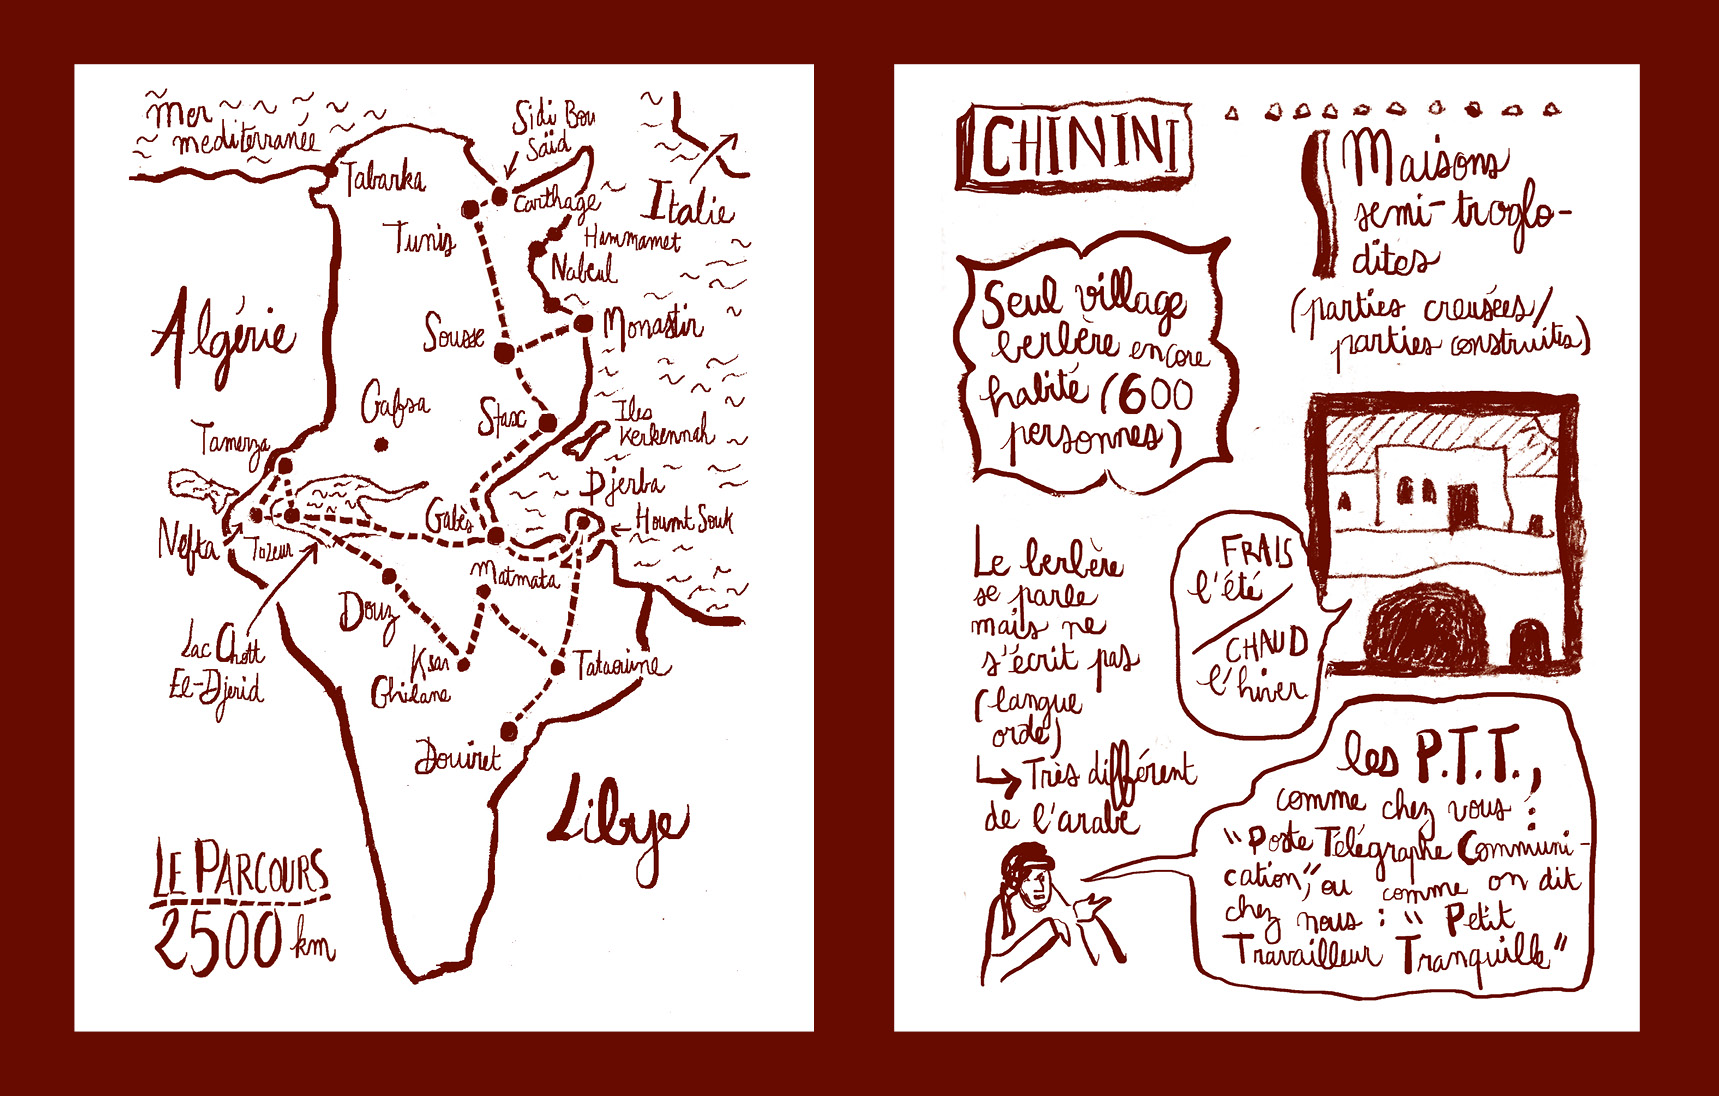 Mer
mediterranée
Sidi Bou
Saïd
Tabarka
Carthage
Italie
Tunis
Hammamet
Nabeul
Algérie
Sousse
Monastir
Gafsa
Sfax
Iles
Kerkennah
Tamerza
Djerba
Gabès
Houmt Souk
Nefta
Tozeur
Matmata
Douz
Lac Chott
El-Djerid
Ksar
Ghilane
Tataouine
Douiret
Libye
LE PARCOURS
2500 km
CHININI
Maisons
semi-troglo-
dites
(parties creusées/
parties construites)
Seul village
berbère encore
habité (600
personnes)
FRAIS
l'été
CHAUD
l'hiver
Le berbère
se parle
mais ne
s'écrit pas
(langue
orde)
Très différent
de l'arabe
les P.T.T.,
comme chez vous :
"Poste Télégraphe Communi-
cation", ou comme on dit
chez nous : "Petit
Travailleur Tranquille"